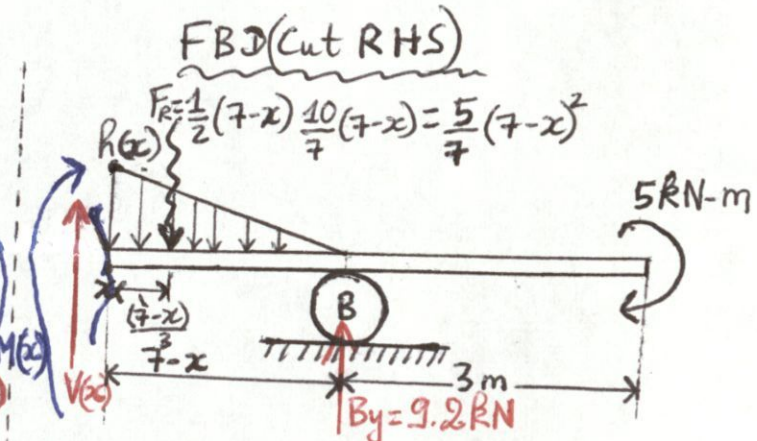 FBD(Cut RHS)
F_R=1/2(7-x) 10/7(7-x)=5/7(7-x)²
h(x)
5kN-m
B
(7-x)/3
7-x
M(x)
V(x)
3m
By=9.2kN